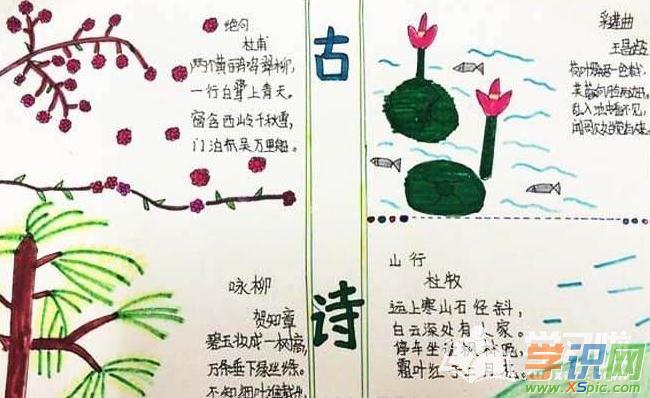 绝句
杜甫
两个黄鹂鸣翠柳,
一行白鹭上青天。
窗含西岭千秋雪,
门泊东吴万里船。
古
诗
采莲曲
王昌龄
荷叶罗裙一色裁,
芙蓉向脸两边开。
乱入池中看不见,
咏柳
贺知章
碧玉妆成一树高,
万条垂下绿丝绦。
不知细叶谁裁出
山行
杜牧
远上寒山石径斜,
白云深处有人家。
停车坐爱枫林晚,
霜叶红于二月花。
学识网
www.xSpic.com